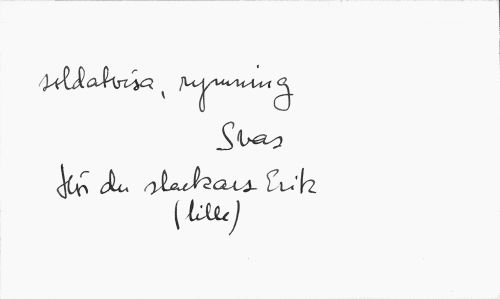 soldatvisa, rymning
Svas
Hör du stackars Erik
(lille)